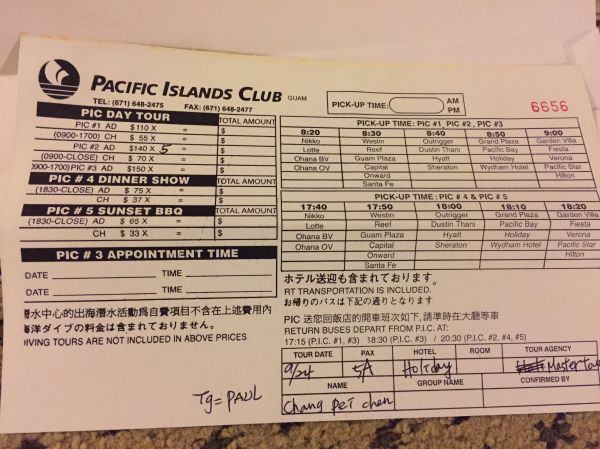 PACIFIC ISLANDS CLUB GUAM
TEL: (671) 648-2475 FAX: (671) 648-2477
PICK-UP TIME: AM PM
6656
PIC DAY TOUR TOTAL AMOUNT
PIC #1 AD $110 X = $
(0900-1700) CH $ 55 X = $
PIC #2 AD $140 X 5 = $
(0900-CLOSE) CH $ 70 X = $
PIC #3 AD $150 X = $
PIC # 4 DINNER SHOW TOTAL AMOUNT
(1830-CLOSE) AD $ 75 X = $
CH $ 37 X = $
PIC # 5 SUNSET BBQ TOTAL AMOUNT
(1830-CLOSE) AD $ 65 X = $
CH $ 33 X = $
PIC # 3 APPOINTMENT TIME
DATE TIME
DATE TIME
潛水中心的出海潛水活動爲自費項目不含在上述費用內
海洋ダイブの料金は含まれていません。
DIVING TOURS ARE NOT INCLUDED IN ABOVE PRICES
Tg= PAUL
PICK-UP TIME: PIC #1, PIC #2, PIC #3
8:20 8:30 8:40 8:50 9:00
Nikko Westin Outrigger Grand Plaza Garden Villa
Lotte Reef Dustin Thani Pacific Bay Fiesta
Ohana BV Guam Plaza Hyatt Holiday Verona
Ohana OV Capital Sheraton Wydham Hotel Pacific Star
Onward Hilton
Santa Fe
PICK-UP TIME: PIC # 4 & PIC # 5
17:40 17:50 18:00 18:10 18:20
Nikko Westin Outrigger Grand Plaza Garden Villa
Lotte Reef Dustin Thani Pacific Bay Fiesta
Ohana BV Guam Plaza Hyatt Holiday Verona
Ohana OV Capital Sheraton Wydham Hotel Pacific Star
Onward Hilton
Santa Fe
ホテル送迎も含まれております。
RT TRANSPORTATION IS INCLUDED.
お帰りのバスは下記の通りとなります
PIC 送您回飯店的開車班次如下, 請準時在大廳等車
RETURN BUSES DEPART FROM P.I.C. AT:
17:15 (P.I.C. #1, #3) 18:30 (P.I.C. #3) / 20:30 (P.I.C. #2, #4, #5)
TOUR DATE PAX HOTEL ROOM TOUR AGENCY
9/24 5A Holiday Master
NAME GROUP NAME CONFIRMED BY
Chang Pei chen